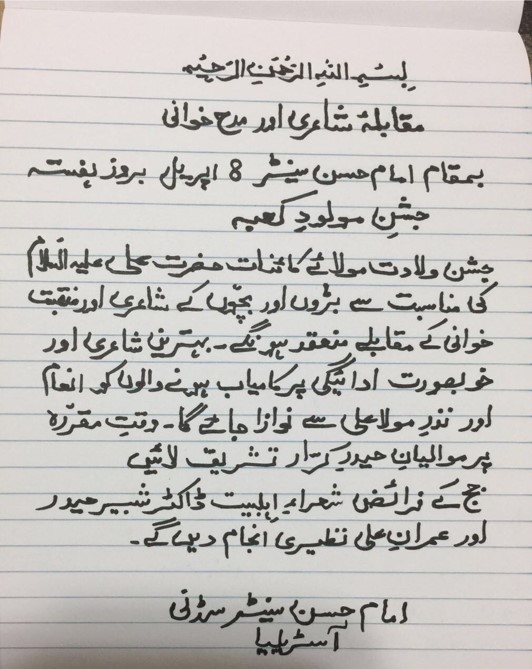 بِسْمِ اللهِ الرَّحْمٰنِ الرَّحِيْمِ
مقابلۂ شاعری اور مدح خوانی
بمقام امام حسن سینٹر 8 اپریل بروز ہفتہ
جشنِ مولودِ کعبہ
جشن ولادت مولائے کائنات حضرت علی علیہ السّلام
کی مناسبت سے بڑوں اور بچّوں کے شاعری اور منقبت
خوانی کے مقابلے منعقد ہونگے۔ بہترین شاعری اور
خوبصورت ادائیگی پر کامیاب ہونے والوں کو انعام
اور نذرِ مولا علی سے نوازا جائے گا۔ وقتِ مقرّرہ
پر موالیانِ حیدرِ کرّار تشریف لائیں
جج کے فرائض شعراءِ اہلبیت ڈاکٹر شبیر حیدر
اور عمران علی نظیری انجام دیں گے۔
امام حسن سینٹر سڈنی
آسٹریلیا